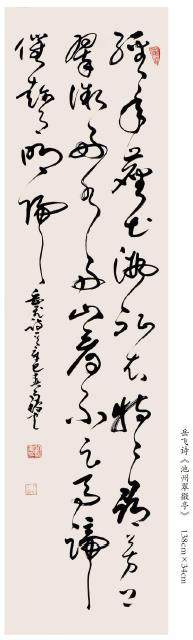 經年塵土滿征衣特特尋芳上
翠微好水好山看不足馬蹄
催趁月明歸
岳飛詩
岳飞诗《池州翠微亭》 138cm×34cm